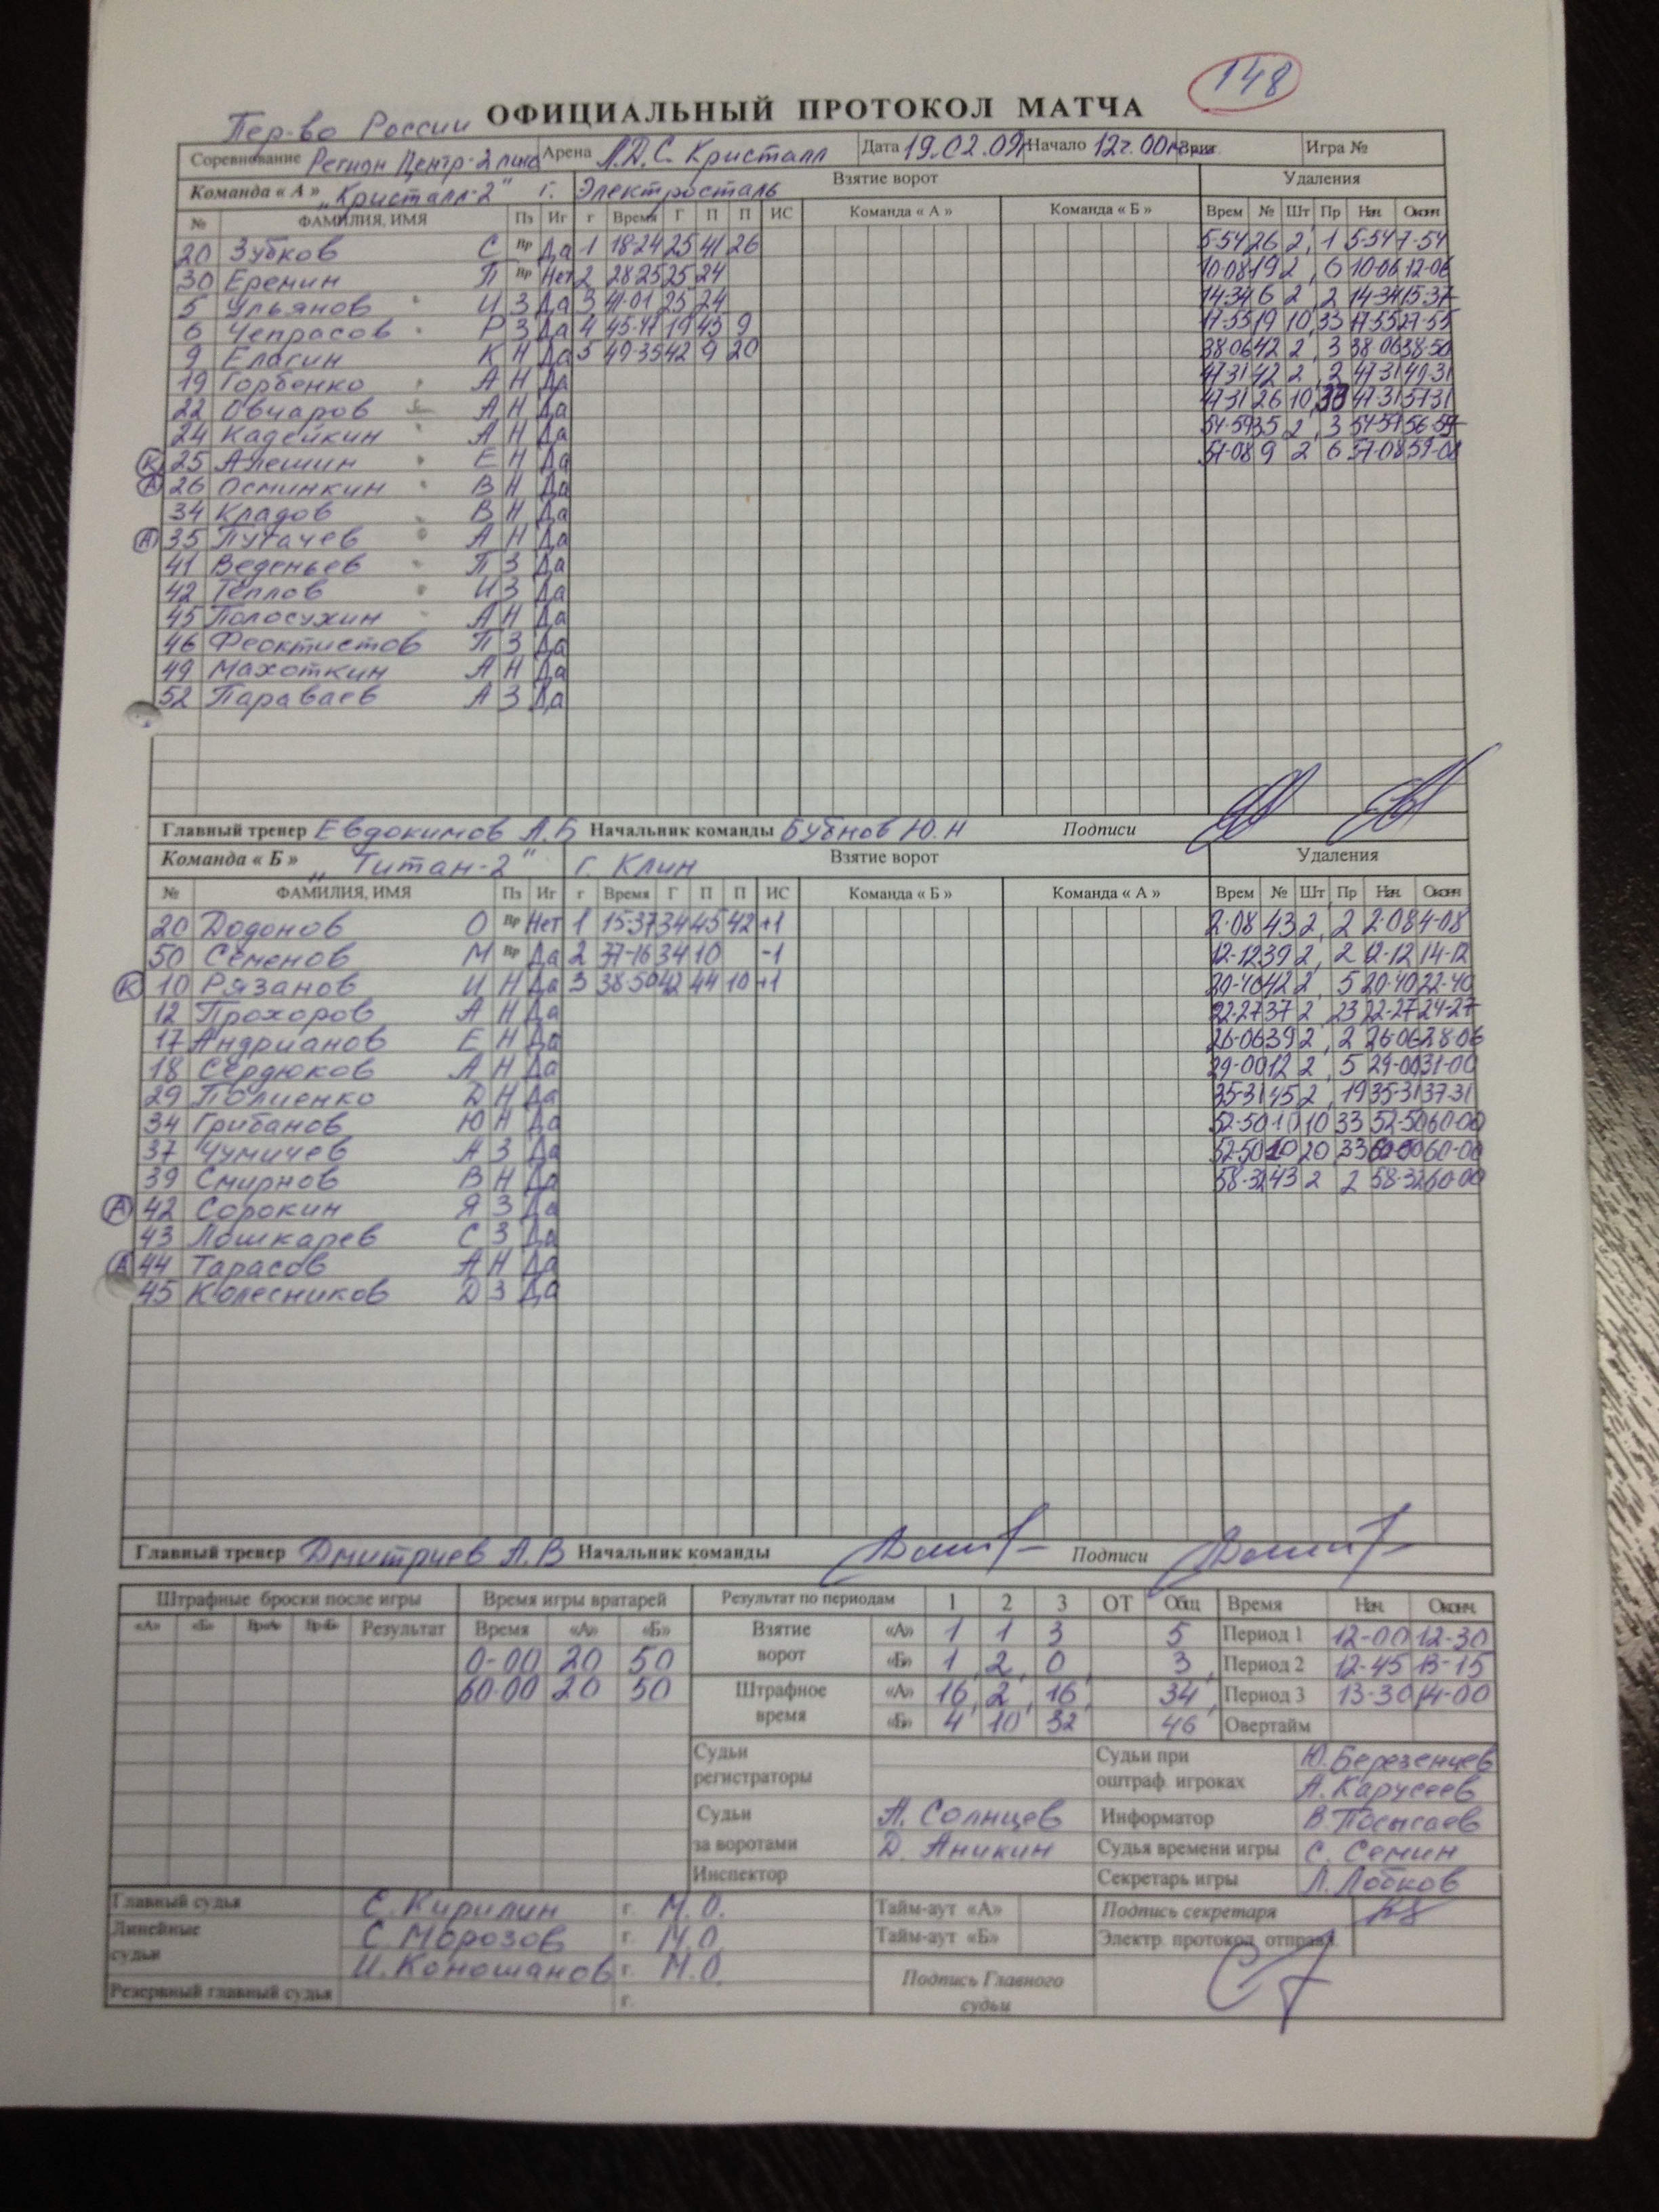 148
Пер-во России ОФИЦИАЛЬНЫЙ ПРОТОКОЛ МАТЧА
Соревнование Регион Центр-2 лига Арена Л.Д.С. Кристалл Дата 19.02.09г Начало 12ч.00 Игра №
Команда « А » „Кристалл-2" г. Электросталь Взятие ворот Удаления
№ ФАМИЛИЯ, ИМЯ Пз Иг г Время Г П П ИС Команда « А » Команда « Б » Врем № Шт Пр Нач. Оконч
20 Зубков С Вр Да 1 18-24 25 41 26 5-54 26 2 1 5-54 7-54
30 Еремин П Вр Нет 2 28-25 25 24 10-08 19 2 6 10-06 12-06
5 Ульянов И З Да 3 41-01 25 24 14-34 6 2 2 14-34 15-37
6 Чепрасов Р З Да 4 45-47 19 45 9 17-55 19 10 33 17-55 27-55
9 Елагин К Н Да 5 49-35 42 9 20 38-06 42 2 3 38-06 38-50
19 Горбенко А Н Да 47-31 42 2 2 47-31 49-31
22 Овчаров А Н Да 47-31 26 10 33 47-31 57-31
24 Кадейкин А Н Да 54-59 35 2 3 54-59 56-59
К 25 Алешин Е Н Да 57-08 9 2 6 57-08 59-08
А 26 Осминкин В Н Да
34 Кладов В Н Да
А 35 Пугачев А Н Да
41 Веденьев П З Да
42 Теплов И З Да
45 Полосухин А Н Да
46 Феоктистов П З Да
49 Махоткин А Н Да
52 Параваев А З Да
Главный тренер Евдокимов А.Б Начальник команды Бубнов Ю.Н Подписи
Команда « Б » „Титан-2" г. Клин Взятие ворот Удаления
№ ФАМИЛИЯ, ИМЯ Пз Иг г Время Г П П ИС Команда « Б » Команда « А » Врем № Шт Пр Нач. Оконч
20 Додонов О Вр Нет 1 15-37 34 45 42 +1 2-08 43 2 2 2-08 4-08
50 Семенов М Вр Да 2 37-16 34 10 -1 12-12 39 2 2 12-12 14-12
К 10 Рязанов И Н Да 3 38-50 42 44 10 +1 20-40 42 2 5 20-40 22-40
12 Прохоров А Н Да 22-27 37 2 23 22-27 24-27
17 Андрианов Е Н Да 26-06 39 2 2 26-06 28-06
18 Сердюков А Н Да 29-00 12 2 5 29-00 31-00
29 Полиенко Д Н Да 35-31 45 2 19 35-31 37-31
34 Грибанов Ю Н Да 52-50 10 10 33 52-50 60-00
37 Чумичев А З Да 52-50 10 20 33 60-00
39 Смирнов В Н Да 58-32 43 2 2 58-32 60-00
А 42 Сорокин Я З Да
43 Лошкарев С З Да
А 44 Тарасов А Н Да
45 Колесников Д З Да
Главный тренер Дмитриев А.В Начальник команды Подписи
Штрафные броски после игры Время игры вратарей Результат по периодам 1 2 3 ОТ Общ Время Нач. Оконч.
«А» «Б» Вр«А» Вр«Б» Результат Время «А» «Б» Взятие ворот «А» 1 1 3 5 Период 1 12-00 12-30
0-00 20 50 «Б» 1 2 0 3 Период 2 12-45 13-15
60-00 20 50 Штрафное время «А» 16 2 16 34 Период 3 13-30 14-00
«Б» 4 10 32 46 Овертайм
Судьи регистраторы Судьи при оштраф. игроках Ю.Березенцев
А.Карусеев
Судьи за воротами А. Солнцев Информатор В.Посысаев
Д. Аникин Судья времени игры С. Семин
Инспектор Секретарь игры Л.Лобков
Главный судья Е.Кирилин г. М.О. Тайм-аут «А» Подпись секретаря
Линейные судьи С.Морозов г. М.О. Тайм-аут «Б» Электр. протокол отправл.
И.Коношанов г. М.О. Подпись Главного судьи
Резервный главный судья г.